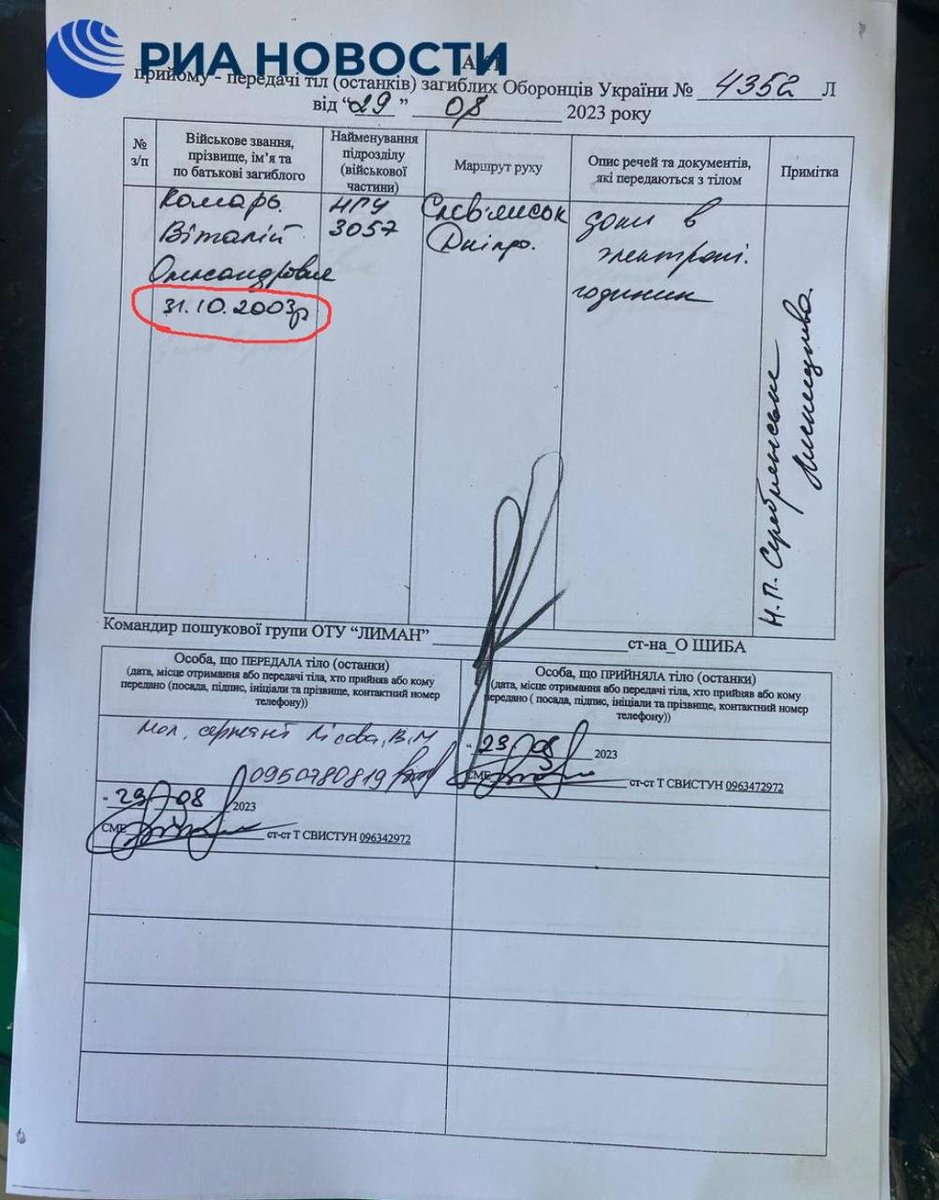 РИА НОВОСТИ
прийому - передачі тіл (останків) загиблих Оборонців України № 4352 Л
від “29” 08 2023 року
№ з/п
Військове звання, прізвище, ім’я та по батькові загиблого
Найменування підрозділу (військової частини)
Маршрут руху
Опис речей та документів, які передаються з тілом
Примітка
Комарь
Віталій
Олександрович
31.10.2003р
НГУ
3057
Слов'янськ
Дніпро.
доки в
електрон.
годинник
Н.П. Серебрянське
Лисництво
Командир пошукової групи ОТУ “ЛИМАН” ст-на_О ШИБА
Особа, що ПЕРЕДАЛА тіло (останки)
(дата, місце отримання або передачі тіла, хто прийняв або кому
передано (посада, підпис, ініціали та прізвище, контактний номер
телефону))
мол. сержант Лісова, В.М
0950780819
“29” 08 2023
СМЕ ст-ст Т СВИСТУН 096342972
Особа, що ПРИЙНЯЛА тіло (останки)
(дата, місце отримання або передачі тіла, хто прийняв або кому
передано ( посада, підпис, ініціали та прізвище, контактний номер
телефону))
“29” 08 2023
СМЕ ст-ст Т СВИСТУН 0963472972